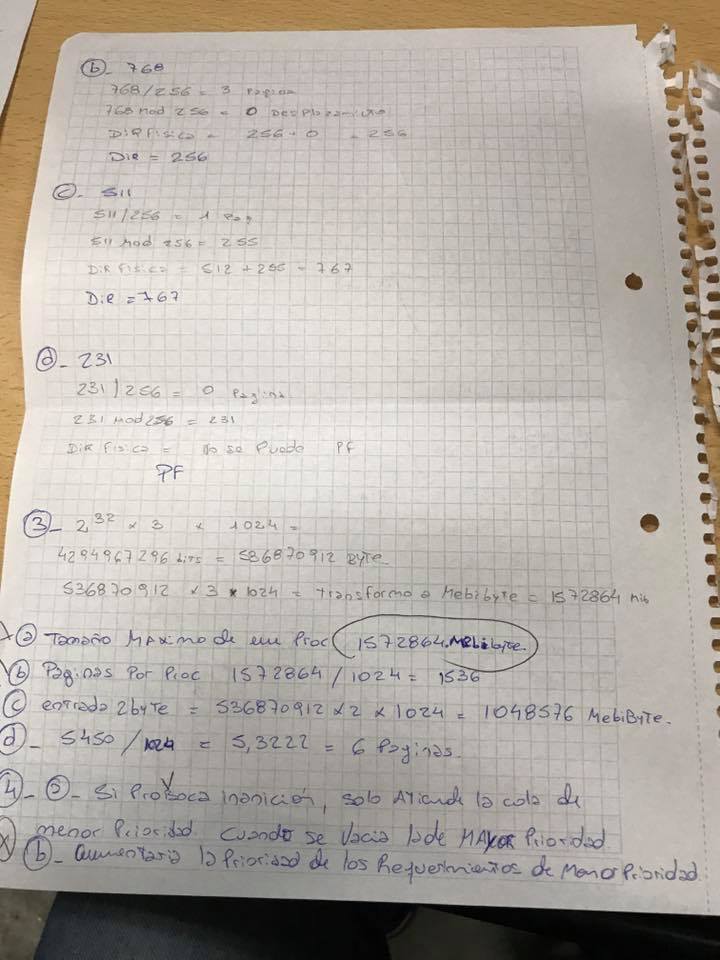 b - 768
768/256 = 3 Pagina
768 mod 256 = 0 Desplazamiento
Dir Fisica = 256 + 0 = 256
Dir = 256
c - 511
511/256 = 1 Pag
511 mod 256 = 255
Dir Fisica = 512 + 255 = 767
Dir = 767
d - 231
231/256 = 0 Pagina
231 mod 256 = 231
Dir Fisica = No se Puede PF
PF
3 - 2^32 x 3 x 1024 =
4294967296 bits = 536870912 Byte
536870912 x 3 x 1024 = Transformo a Mebibyte = 1572864 mib
a Tamaño Maximo de un Proc 1572864 Mebibyte.
b Paginas Por Proc 1572864 / 1024 = 1536
c entrada 2byte = 536870912 x 2 x 1024 = 1048576 MebiByte.
d - 5450 / 1024 = 5,3222 = 6 Paginas
4 - a - Si Provoca inanición, solo Atiende la cola de
menor Prioridad cuando se vacia la de MAYOR Prioridad
b - aumentaria la Prioridad de los Requerimientos de Menor Prioridad.